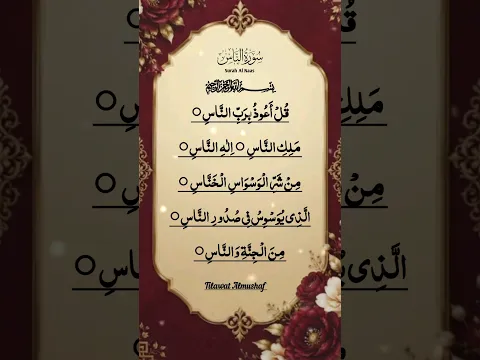 سُوْرَةُ النَّاسِ
Surah Al Naas
بِسْمِ اللهِ الرَّحْمٰنِ الرَّحِيْمِ
قُلْ اَعُوْذُ بِرَبِّ النَّاسِ ۝
مَلِكِ النَّاسِ ۝ اِلٰهِ النَّاسِ ۝
مِنْ شَرِّ الْوَسْوَاسِ الْخَنَّاسِ ۝
الَّذِىْ يُوَسْوِسُ فِىْ صُدُوْرِ النَّاسِ ۝
مِنَ الْجِنَّةِ وَالنَّاسِ ۝
Tilawat Almushaf